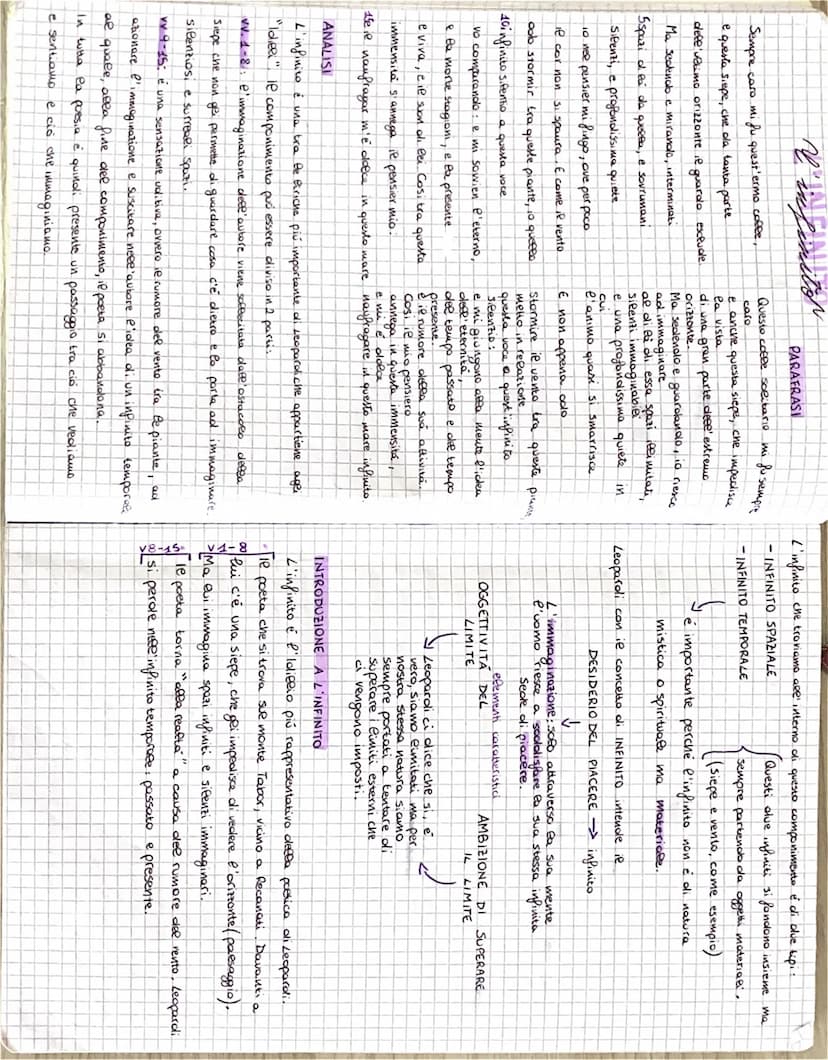 L'INFINITO
L'infinito
Sempre caro mi fu quest'ermo colle,
e questa siepe, che da tanta parte
dell'ultimo orizzonte il guardo esclude.
Ma sedendo e mirando, interminati
5 spazi di là da quella, e sovrumani
silenzi, e profondissima quiete
io nel pensier mi fingo, ove per poco
il cor non si spaura. E come il vento
odo stormir tra queste piante, io quello
10 infinito silenzio a questa voce
vo comparando: e mi sovvien l'eterno,
e le morte stagioni, e la presente
e viva, e il suon di lei. Così tra questa
immensità s'annega il pensier mio:
15 e il naufragar m'è dolce in questo mare
PARAFRASI
Questo colle solitario mi fu sempre
caro
e anche questa siepe, che impedisce
la vista
di una gran parte dell'estremo
orizzonte.
Ma sedendo e guardando, io riesco
ad immaginare
al di là di essa spazi illimitati,
silenzi immaginabili
e una profondissima quiete in
cui
l'animo quasi si smarrisce
E non appena odo
stormire il vento tra queste piante,
metto in relazione
questa voce a quest'infinito
silenzio:
e mi giungono alla mente l'idea
dell'eternità
del tempo passato e del tempo
presente
e il rumore della sua attività.
Così il mio pensiero
annega in questa immensità,
e mi è dolce
naufragare in questo mare infinito.
ANALISI
L'infinito è una tra le liriche più importante di Leopardi che appartiene agli
"Idilli". Il componimento può essere diviso in 2 parti:
vv. 1-8: l'immaginazione dell'autore viene sollecitata dall'ostacolo della
siepe che non gli permette di guardare cosa c'è dietro e lo porta ad immaginare
silenziosi e surreali spazi.
vv 9-15: è una sensazione uditiva, ovvero il rumore del vento tra le piante, ad
azionare l'immaginazione e suscitare nell'autore l'idea di un infinito temporale
al quale, alla fine del componimento, il poeta si abbandona.
In tutta la poesia è quindi presente un passaggio tra ciò che vediamo
e sentiamo e ciò che immaginiamo.
L'infinito che troviamo all'interno di questo componimento è di due tipi:
- INFINITO SPAZIALE
- INFINITO TEMPORALE
Questi due infiniti si fondono insieme ma
sempre partendo da oggetti materiali.
(siepe e vento, come esempio)
è importante perché l'infinito non è di natura
mistica o spirituale ma materiale.
Leopardi con il concetto di INFINITO intende il
DESIDERIO DEL PIACERE → infinito
L'immaginazione: solo attraverso la sua mente
l'uomo riesce a soddisfare la sua stessa infinita
sede di piacere.
elementi caratteristici
OGGETTIVITÀ DEL
LIMITE
AMBIZIONE DI SUPERARE
IL LIMITE
Leopardi ci dice che si, è
vero, siamo limitati ma per
nostra stessa natura siamo
sempre portati a tentare di
superare i limiti esterni che
ci vengono imposti.
INTRODUZIONE A L'INFINITO
L'infinito è l'Idillio più rappresentativo della poetica di Leopardi.
v 1-8
Il poeta che si trova sul monte Tabor, vicino a Recanati. Davanti a
lui c'è una siepe, che gli impedisce di vedere l'orizzonte (paesaggio).
Ma lui immagina spazi infiniti e silenzi immaginari.
v 8-15
Il poeta torna "alla realtà" a causa del rumore del vento, Leopardi
si perde nell'infinito temporale: passato e presente.